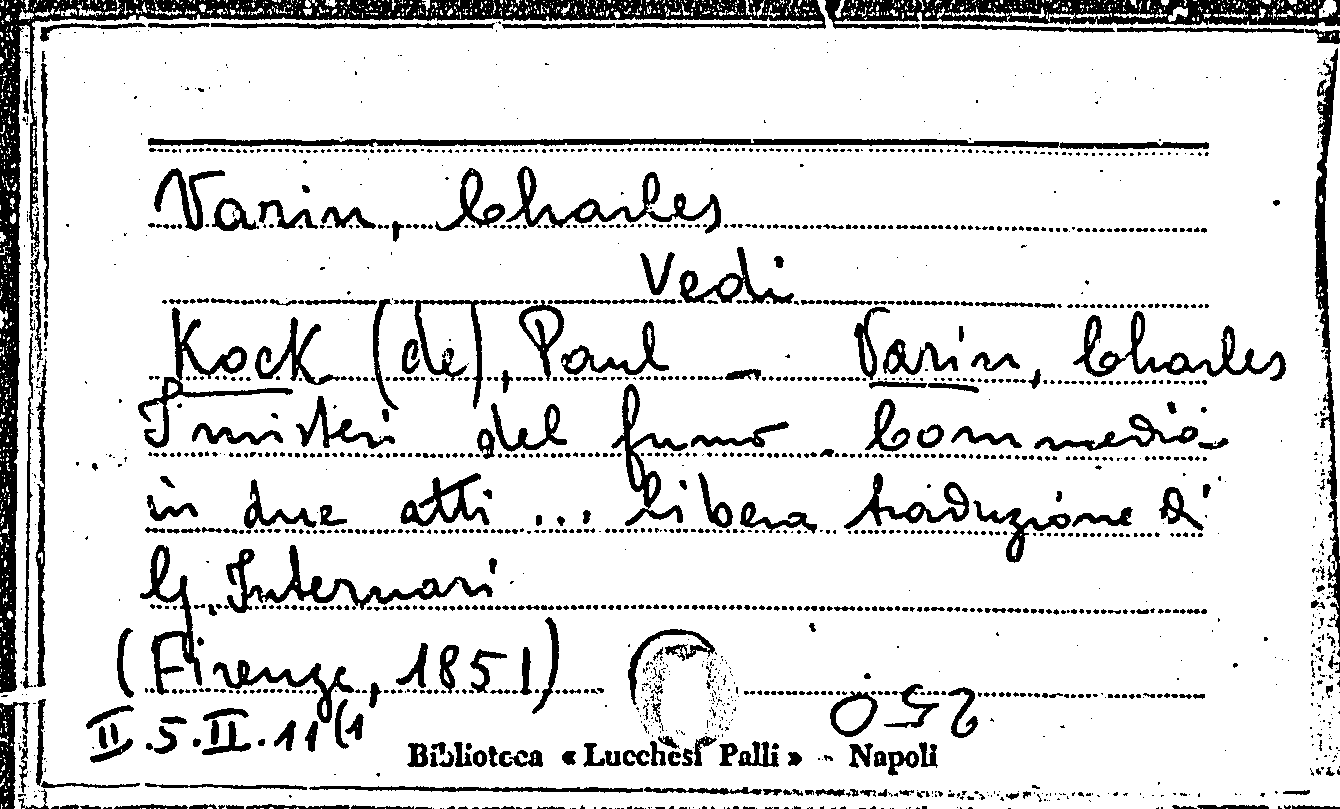 Varin, Charles
Vedi
Kock (de), Paul – Varin, Charles
I misteri del fumo. Commedia
in due atti ... libera traduzione di
G. Internari
(Firenze, 1851)
250
II.5.II.11(1
Biblioteca « Lucchesi Palli » - Napoli